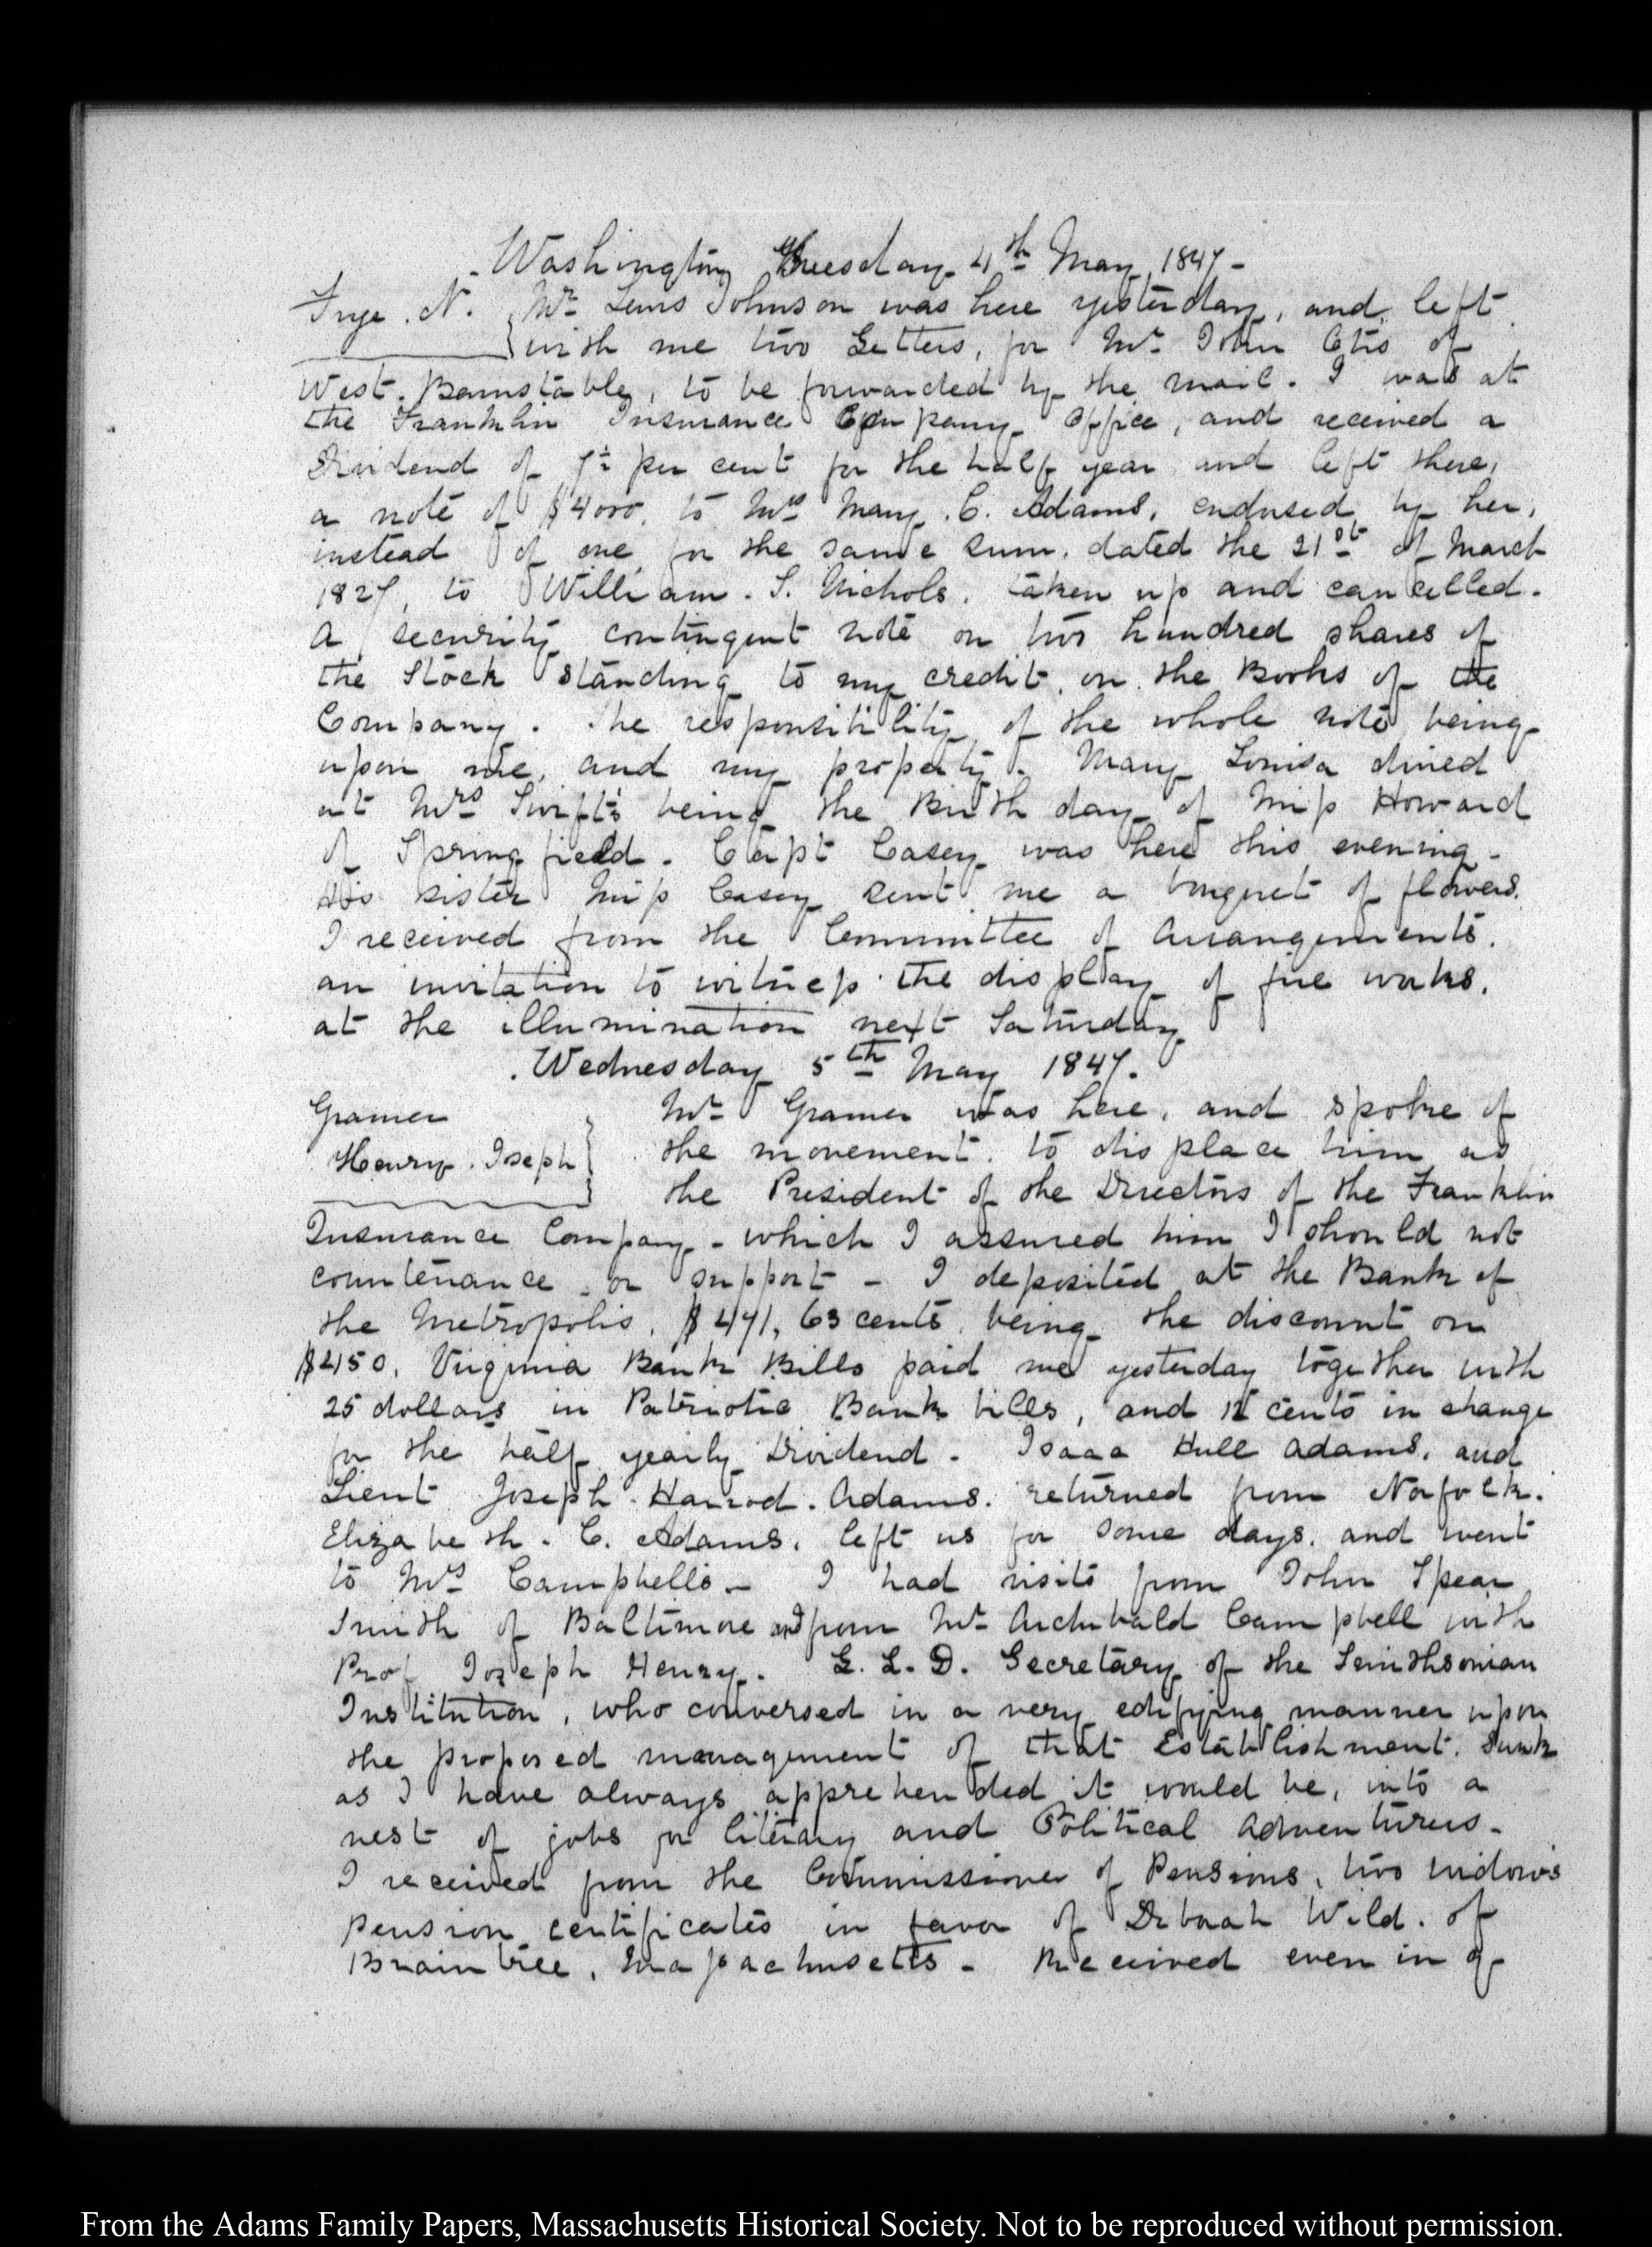 Washington Tuesday 4th May 1847 -
Frye . N. Mr Lewis Johnson was here yesterday, and left
with me two Letters, for Mr John Otis of
West. Barnstable, to be forwarded by the mail. I was at
the Franklin Insurance Company Office, and received a
Dividend of per cent for the half year and left there,
a note of $4000. to Mrs Mary . C. Adams, endorsed by her,
instead of one for the same sum, dated the 21st of March
1827, to William . S. Nichols, taken up and cancelled.
A security contingent note on two hundred shares of
the Stock standing to my credit, on the Books of the
Company . The responsibility of the whole note being
upon me, and my property. Mary Louisa dined
at Mrs Swift's being the Birth day of Miss Howard
of Springfield. Capt Casey was here this evening -
His sister Miss Casey sent me a bouquet of flowers.
I received from the Committee of Arrangements.
an invitation to witness the display of fire works,
at the illumination next Saturday
. Wednesday 5th May 1847.
Gramer
Henry . Joseph
Mr Gramer was here, and spoke of
the movement. to displace him as
the President of the Directors of the Franklin
Insurance Company - which I assured him I should not
countenance or support - I deposited at the Bank of
the Metropolis. $471, 63 cents, being the discount on
$450. Virginia Bank Bills paid me yesterday together with
25 dollars in Patriotic Bank bills, and cents in change
for the half yearly Dividend - Isaac Hull Adams, and
Lieut Joseph . Harrod . Adams. returned from Norfolk.
Elizabeth . C. Adams, left us for some days. and went
to Mrs Campbells - I had visits from John Spear
Smith of Baltimore and from Mr Archibald Campbell with
Prof Joseph Henry. L. L. D. Secretary of the Smithsonian
Institution, who conversed in a very edifying manner upon
the proposed management of that Establishment. Sunk
as I have always apprehended it would be, into a
nest of jobs for literary and Political adventurers -
I received from the Commissioner of Pensions, two widow's
pension certificates in favor of Deborah Wild. of
Braintree, Massachusetts - Received even in g
From the Adams Family Papers, Massachusetts Historical Society. Not to be reproduced without permission.